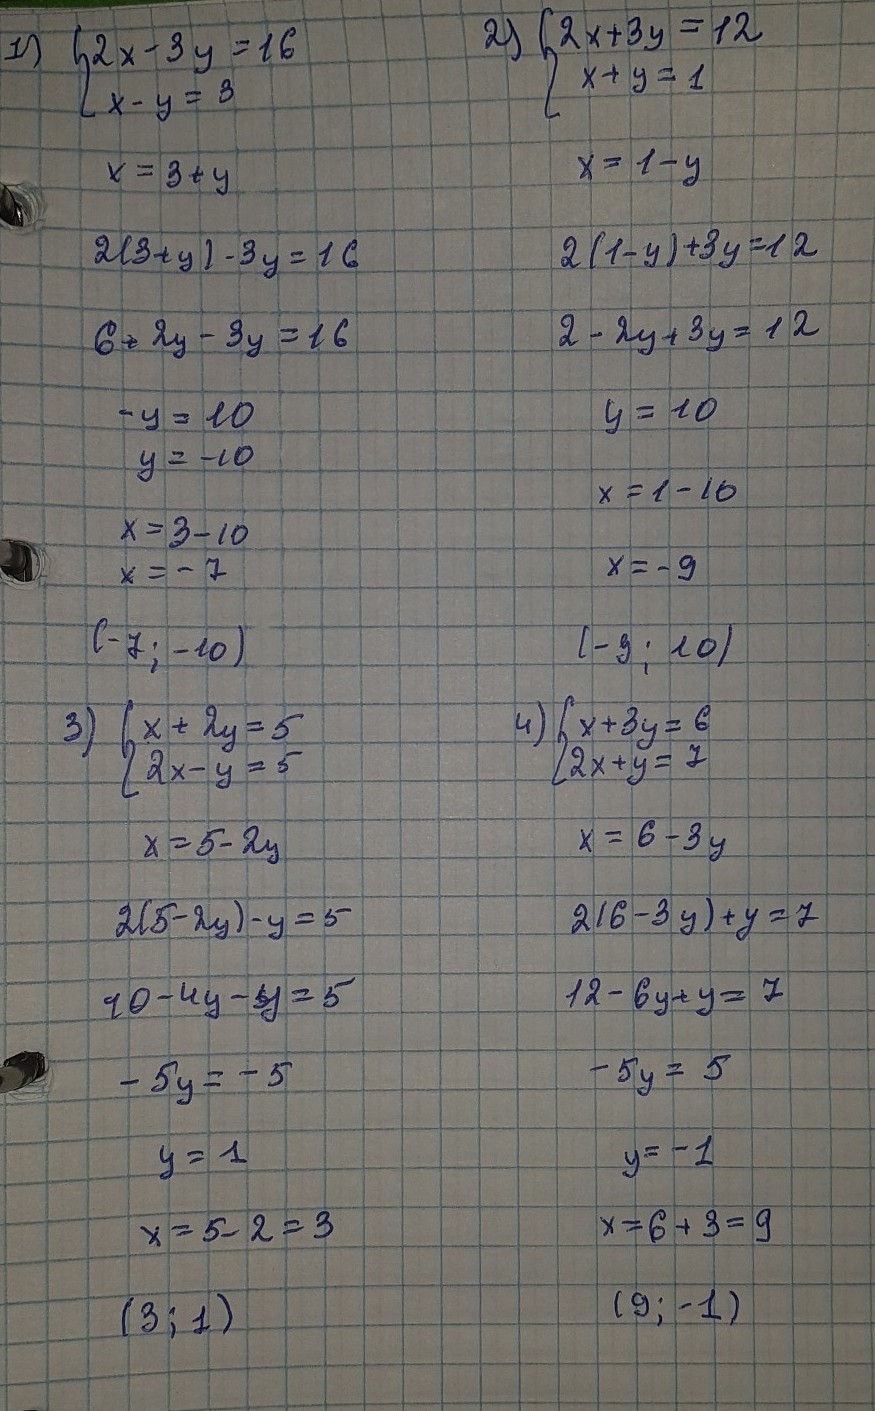 1) {2x-3y=16
x-y=3
x=3+y
2(3+y)-3y=16
6+2y-3y=16
-y=10
y=-10
x=3-10
x=-7
(-7; -10)
2) {2x+3y=12
x+y=1
x=1-y
2(1-y)+3y=12
2-2y+3y=12
y=10
x=1-10
x=-9
(-9; 10)
3) {x+2y=5
2x-y=5
x=5-2y
2(5-2y)-y=5
10-4y-y=5
-5y=-5
y=1
x=5-2=3
(3; 1)
4) {x+3y=6
2x+y=7
x=6-3y
2(6-3y)+y=7
12-6y+y=7
-5y=5
y=-1
x=6+3=9
(9; -1)